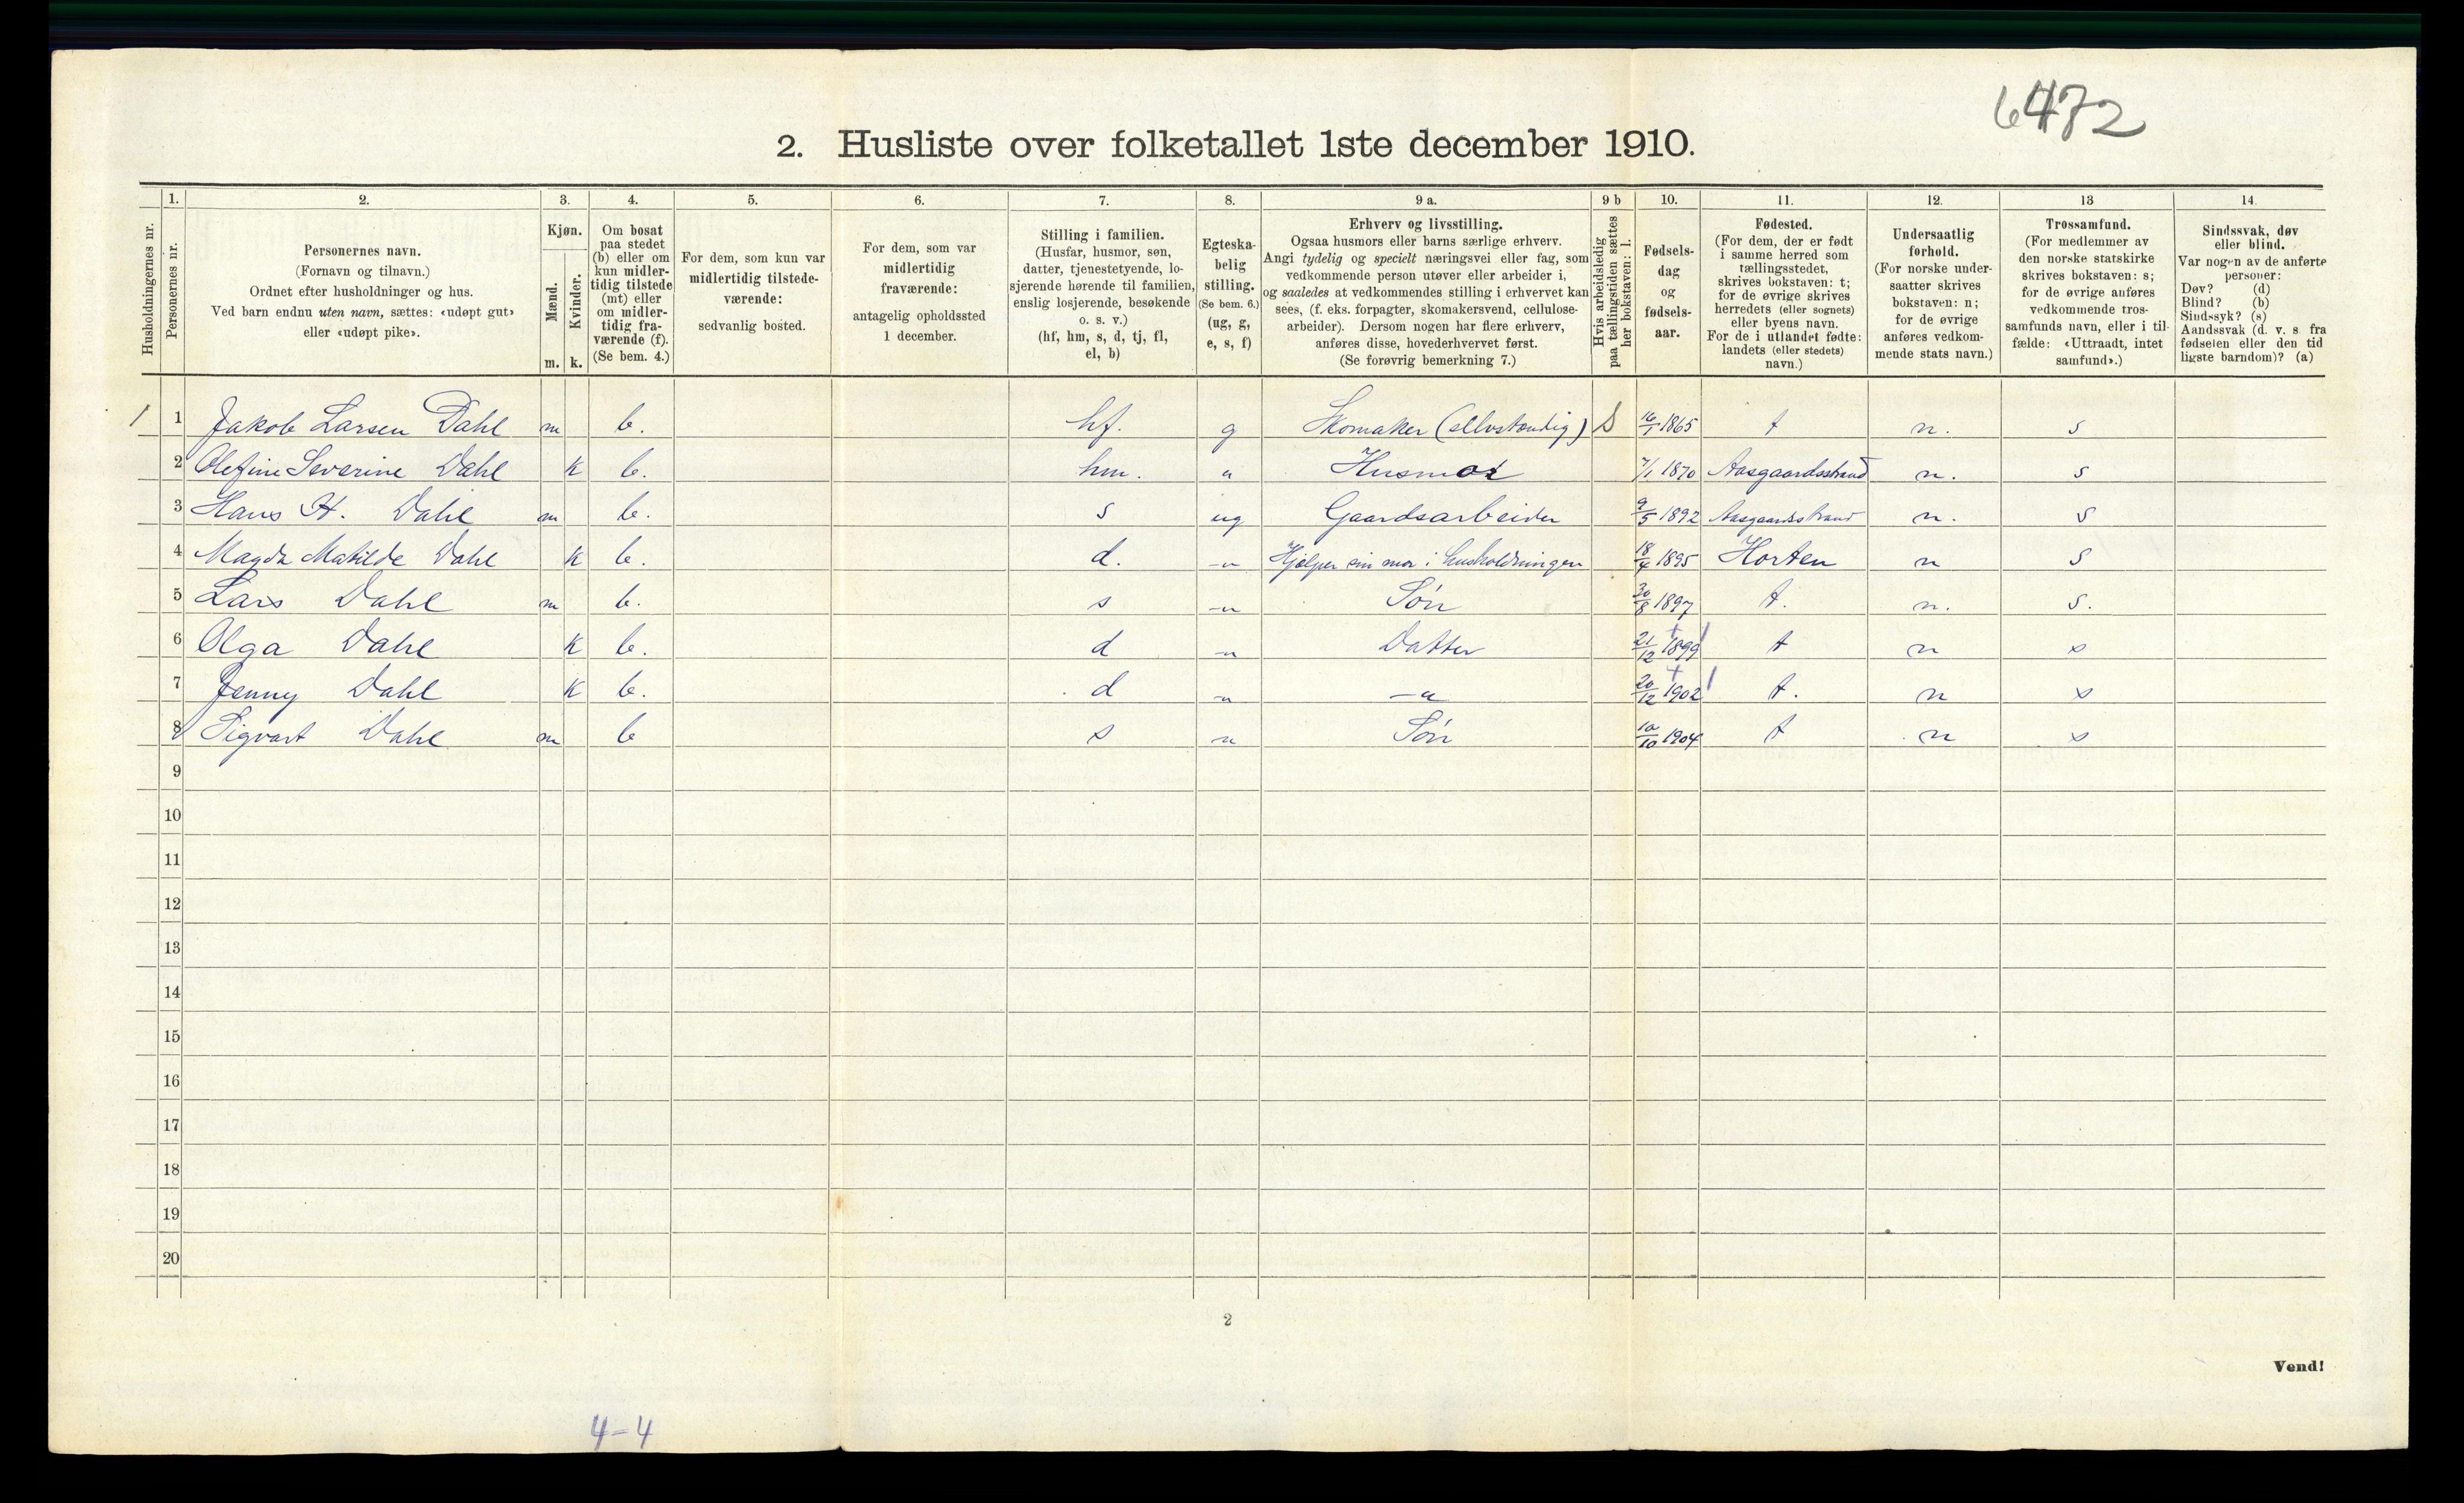 6472
2. Husliste over folketallet 1ste december 1910.
Husholdningernes nr.
1.
Personernes nr.
2.
Personernes navn.
(Fornavn og tilnavn.)
Ordnet efter husholdninger og hus.
Ved barn endnu uten navn, sættes: «udøpt gut»
eller «udøpt pike».
3.
Kjøn.
Mænd.
Kvinder.
m. k.
4.
Om bosat
paa stedet
(b) eller om
kun midler-
tidig tilstede
(mt) eller
om midler-
tidig fra-
værende (f).
(Se bem. 4.)
5.
For dem, som kun var
midlertidig tilstede-
værende:
sedvanlig bosted.
6.
For dem, som var
midlertidig
fraværende:
antagelig opholdssted
1 december.
7.
Stilling i familien.
(Husfar, husmor, søn,
datter, tjenestetyende, lo-
sjerende hørende til familien,
enslig losjerende, besøkende
o. s. v.)
(hf, hm, s, d, tj, fl,
el, b)
8.
Egteska-
belig
stilling.
(Se bem. 6.)
(ug, g,
e, s, f)
9 a.
Erhverv og livsstilling.
Ogsaa husmors eller barns særlige erhverv.
Angi tydelig og specielt næringsvei eller fag, som
vedkommende person utøver eller arbeider i,
og saaledes at vedkommendes stilling i erhvervet kan
sees, (f. eks. forpagter, skomakersvend, cellulose-
arbeider). Dersom nogen har flere erhverv,
anføres disse, hovederhvervet først.
(Se forøvrig bemerkning 7.)
9 b
Hvis arbeidsledig
paa tællingstiden sættes
her bokstaven: l.
10.
Fødsels-
dag
og
fødsels-
aar.
11.
Fødested.
(For dem, der er født
i samme herred som
tællingsstedet,
skrives bokstaven: t;
for de øvrige skrives
herredets (eller sognets)
eller byens navn.
For de i utlandet fødte:
landets (eller stedets)
navn.)
12.
Undersaatlig
forhold.
(For norske under-
saatter skrives
bokstaven: n;
for de øvrige
anføres vedkom-
mende stats navn.)
13
Trossamfund.
(For medlemmer av
den norske statskirke
skrives bokstaven: s;
for de øvrige anføres
vedkommende tros-
samfunds navn, eller i til-
fælde: «Uttraadt, intet
samfund».)
14.
Sindssvak, døv
eller blind.
Var nogen av de anførte
personer:
Døv? (d)
Blind? (b)
Sindssyk? (s)
Aandssvak (d. v. s. fra
fødselen eller den tid
ligste barndom)? (a)
1 1 Jakob Larsen Dahl m b. hf. g Skomaker (sellvstændig) S 16/1 1865 t n. s
2 Olefine Severine Dahl k b. hm. " Husmor 7/1 1870 Aasgaardsstrand n. s
3 Hans H. Dahl m b. s ug Gaardsarbeider 9/5 1892 Aasgaardsstrand n. s
4 Magda Matilde Dahl k b. d. -"- Hjælper sin mor i husholdningen 18/4 1895 Horten n s
5 Lars Dahl m b. s -"- Søn 30/8 1897 t. n. s.
6 Olga Dahl k b. d -"- Datter 21/12 1899 t n s
7 Jenny Dahl k b. d -"- -"- 20/12 1902 t. n s
8 Sigvart Dahl m b s -"- Søn 10/10 1904 t n s
9
10
11
12
13
14
15
16
17
18
19
20
2
Vend!
4-4